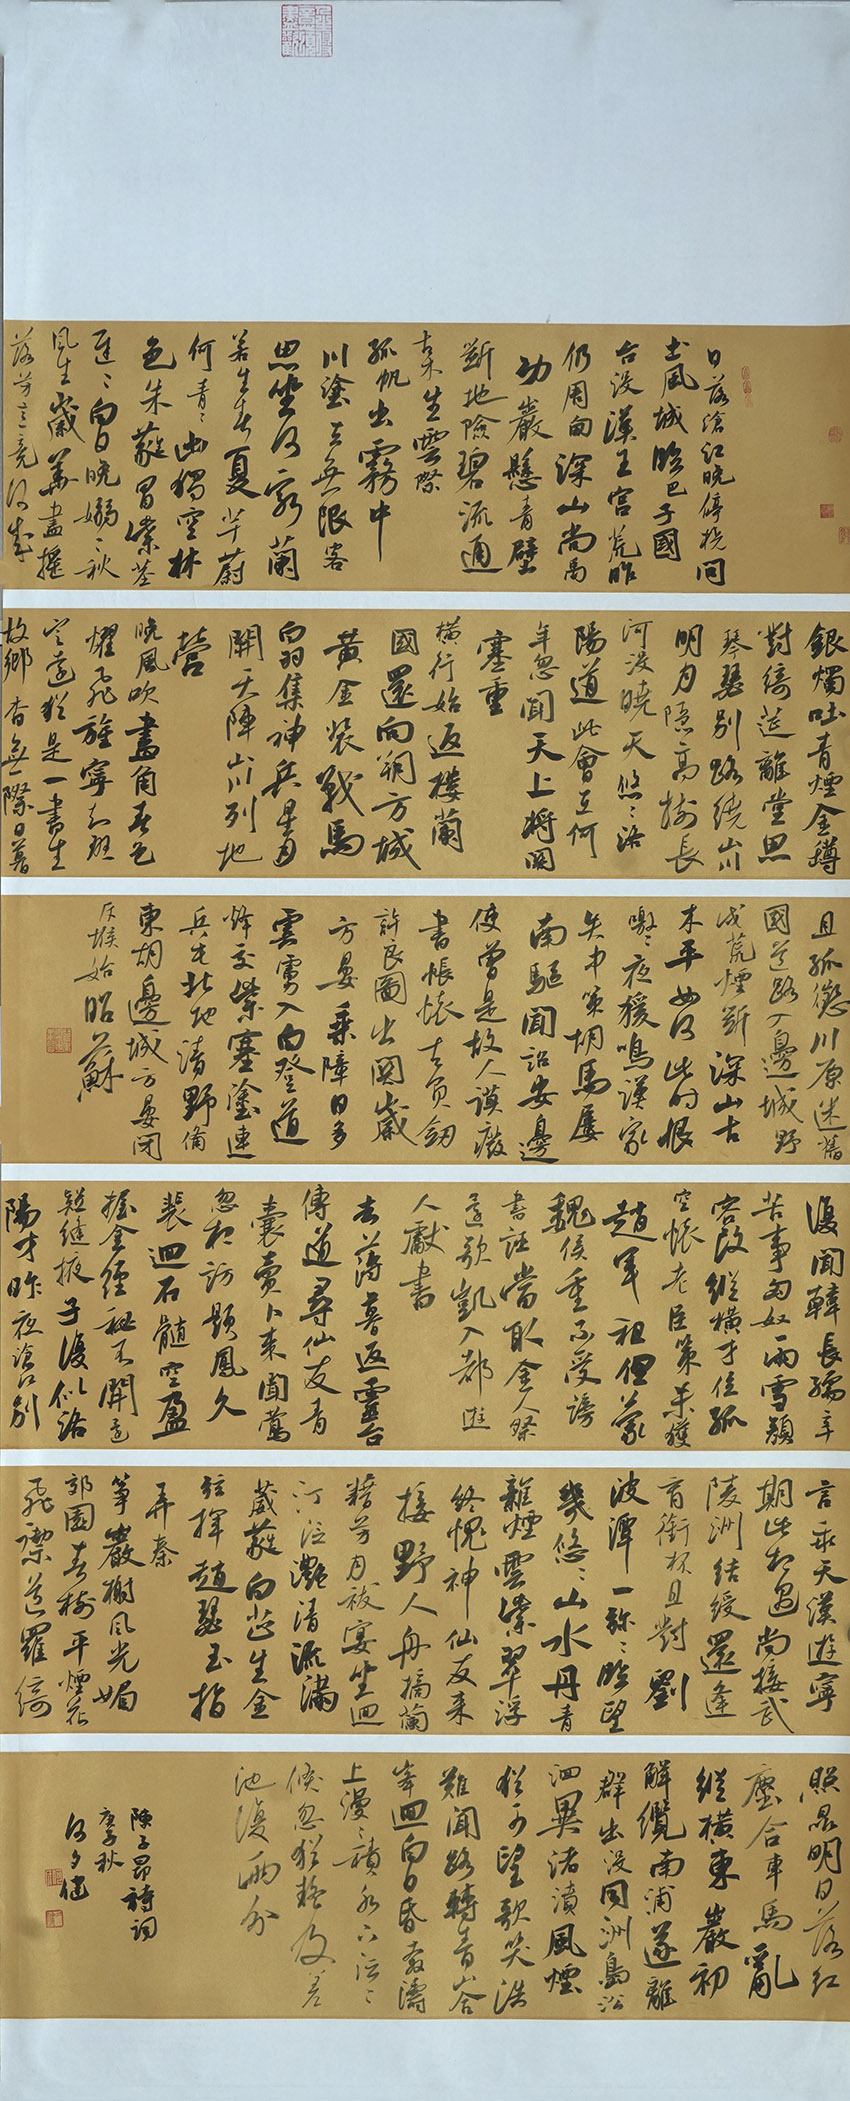 日落滄江晚停橈問
土風城臨巴子國
台沒漢王宮荒昨
仍周甸深山尚禹
功巖懸青壁
斷地險碧流通
古木生雲際
孤帆出霧中
川塗去無限客
思坐何窮蘭
若生春夏芊蔚
何青々幽獨空林
色朱蕤冒紫莖
遲々白日晚嫋々秋
風生歲華盡搖
落芳意竟何成
銀燭吐青煙金樽
對綺筵離堂思
琴瑟別路繞山川
明月隱高樹長
河沒曉天悠々洛
陽道此會在何
年忽聞天上將關
塞重
橫行始返樓蘭
國還向朔方城
黃金裝戰馬
白羽集神兵星月
開天陣山川列地
營
晚風吹畫角春色
耀飛旌寧知班
定遠猶是一書生
故鄉杳無際日暮
且孤征川原迷舊
國道路入邊城野
戍荒煙斷深山古
木平如何此時恨
噭々夜猿鳴漢家
失中策胡馬屢
南驅聞詔安邊
使曾是故人謨廢
書悵懷古負劍
許良圖出關歲
方晏乘障日多
虞虜入白登道
烽交紫塞塗連
兵屯北地清野備
東胡邊城方晏閉
斥堠始昭蘇
復聞韓長孺辛
苦事匈奴雨雪顏
容改縱橫才位孤
空懷老臣策未獲
趙軍租但蒙
魏侯重不受謗
書誣當取金人祭
還歌凱入都遊
人獻書
去薄暮返靈台
傳道尋仙友青
囊賣卜來聞鶯
忽相訪題鳳久
裴迴石髓空盈
握金經秘不開還
疑縫掖子復似洛
陽才昨夜滄江別
言乖天漢遊寧
期此相遇尚接武
陵洲結綬還逢
育銜杯且對劉
波潭一彌々臨望
幾悠々山水丹青
雜煙雲紫翠浮
終愧神仙友來
接野人舟摘蘭
藉芳月祓宴坐迴
汀泛灩清流滿
葳蕤白芷生金
弦揮趙瑟玉指
弄秦
箏巖榭風光媚
郊園春樹平煙花
飛禊道羅綺
照昆明日落紅
塵合車馬亂
縱橫東巖初
解纜南浦遂離
群出沒同洲島沿
洄異渚濆風煙
猶可望歌笑浩
難聞路轉青山合
峯迴白日昏奔濤
上漫々積水下沄々
倏忽猶疑及差
池復兩分
陳子昂詩詞
庚子秋